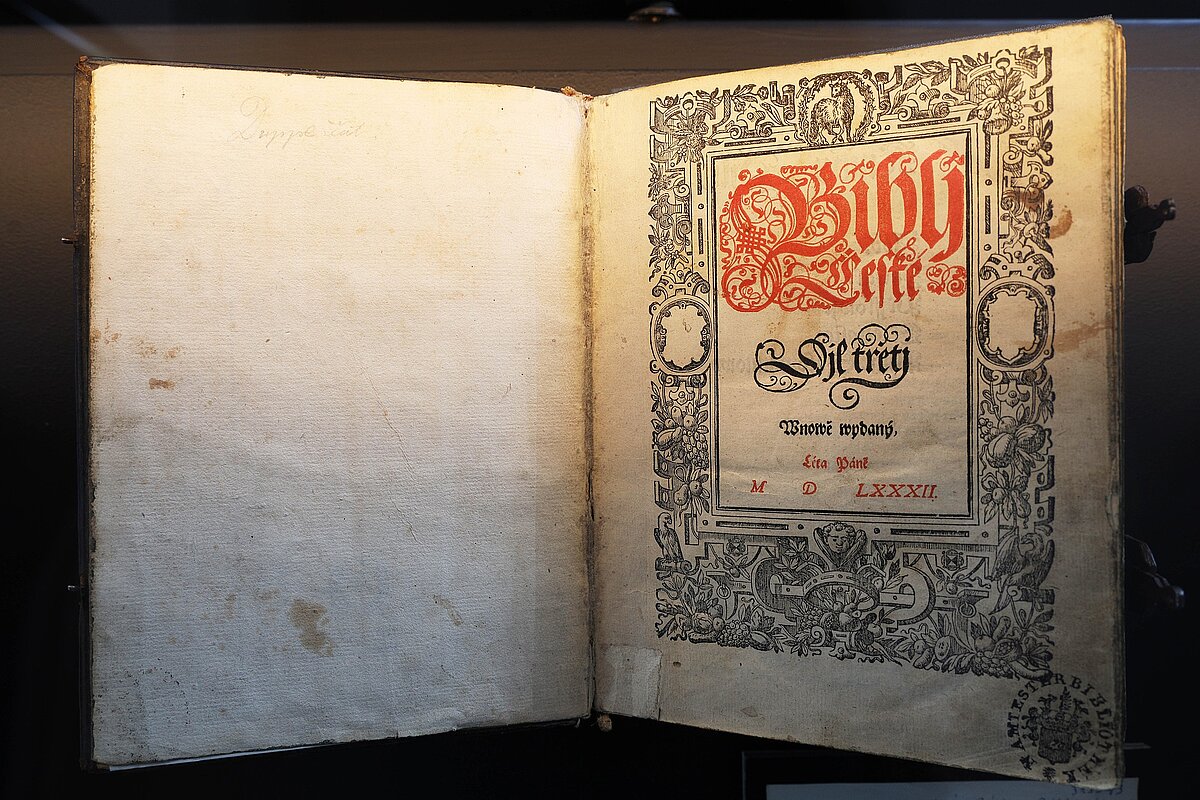 Biblj
Cžeské
Djl třetj
Wnowě wydaný,
Léta Páně
M D LXXXII.